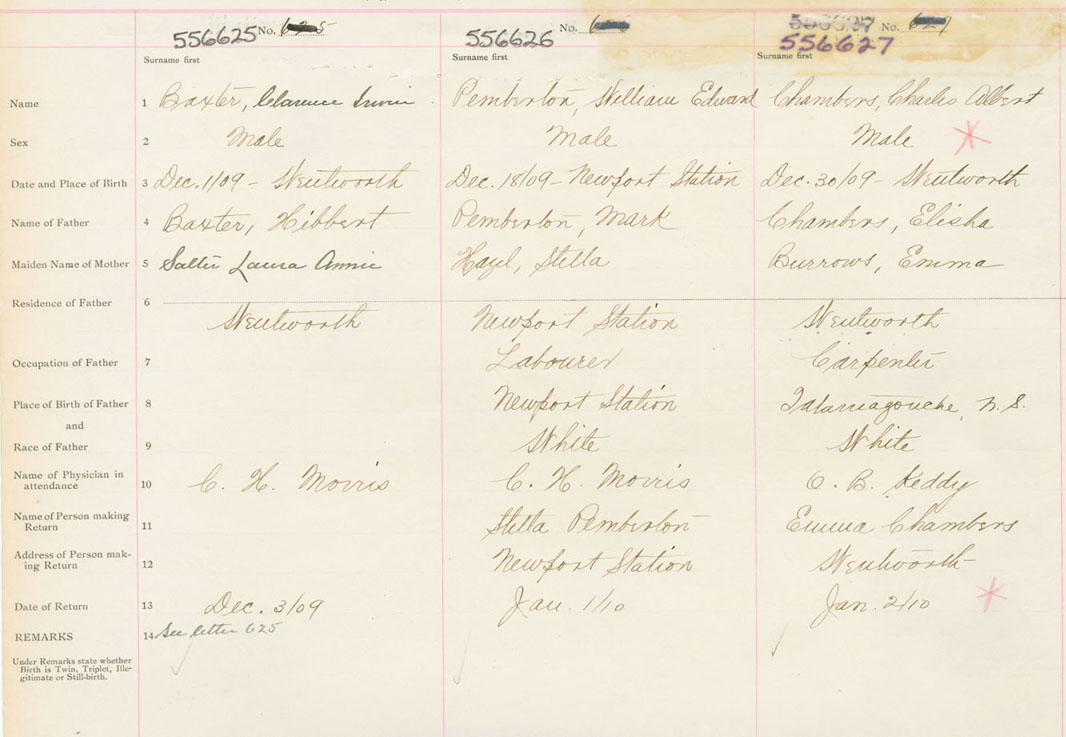 556625 No. 625 556626 No. 556627 No. 627
556627
Surname first Surname first Surname first
Name 1 Baxter, Clarence Irwin Pemberton, William Edward Chambers, Charles Albert
Sex 2 Male Male Male
Date and Place of Birth 3 Dec. 1/09 - Wentworth Dec. 18/09 - Newport Station Dec. 30/09 - Wentworth
Name of Father 4 Baxter, Hibbert Pemberton, Mark Chambers, Elisha
Maiden Name of Mother 5 Salter Laura Annie Stella Burrows, Emma
Residence of Father 6
Wentworth Newport Station Wentworth
Occupation of Father 7 Labourer Carpenter
Place of Birth of Father 8 Newport Station Tatamagouche, N. S.
and
Race of Father 9 White White
Name of Physician in
attendance 10 C. H. Morris C. H. Morris O. B. Keddy
Name of Person making
Return 11 Stella Pemberton Emma Chambers
Address of Person mak-
ing Return 12 Newport Station Wentworth
Date of Return 13 Dec. 3/09 Jan. 1/10 Jan. 2/10
REMARKS 14 See letter 625
Under Remarks state whether
Birth is Twin, Triplet, Ille-
gitimate or Still-birth.